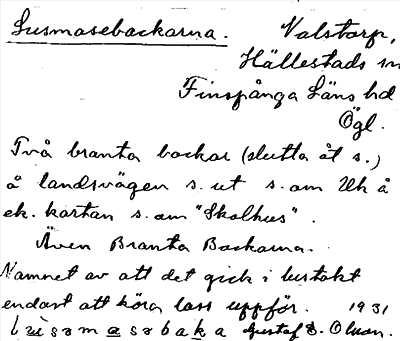 Lusmasebackarna. Valstorp,
Hällestads sn
Finspånga Läns hd
Ögl.
Två branta backar (slutta åt s.)
å landsvägen s. ut s. om Uh å
ek. kartan s. om "Skolhus".
Även Branta Backarna.
Namnet av att det gick i lustakt
endast att köra lass uppför. 1931
Gustaf E. Olson.